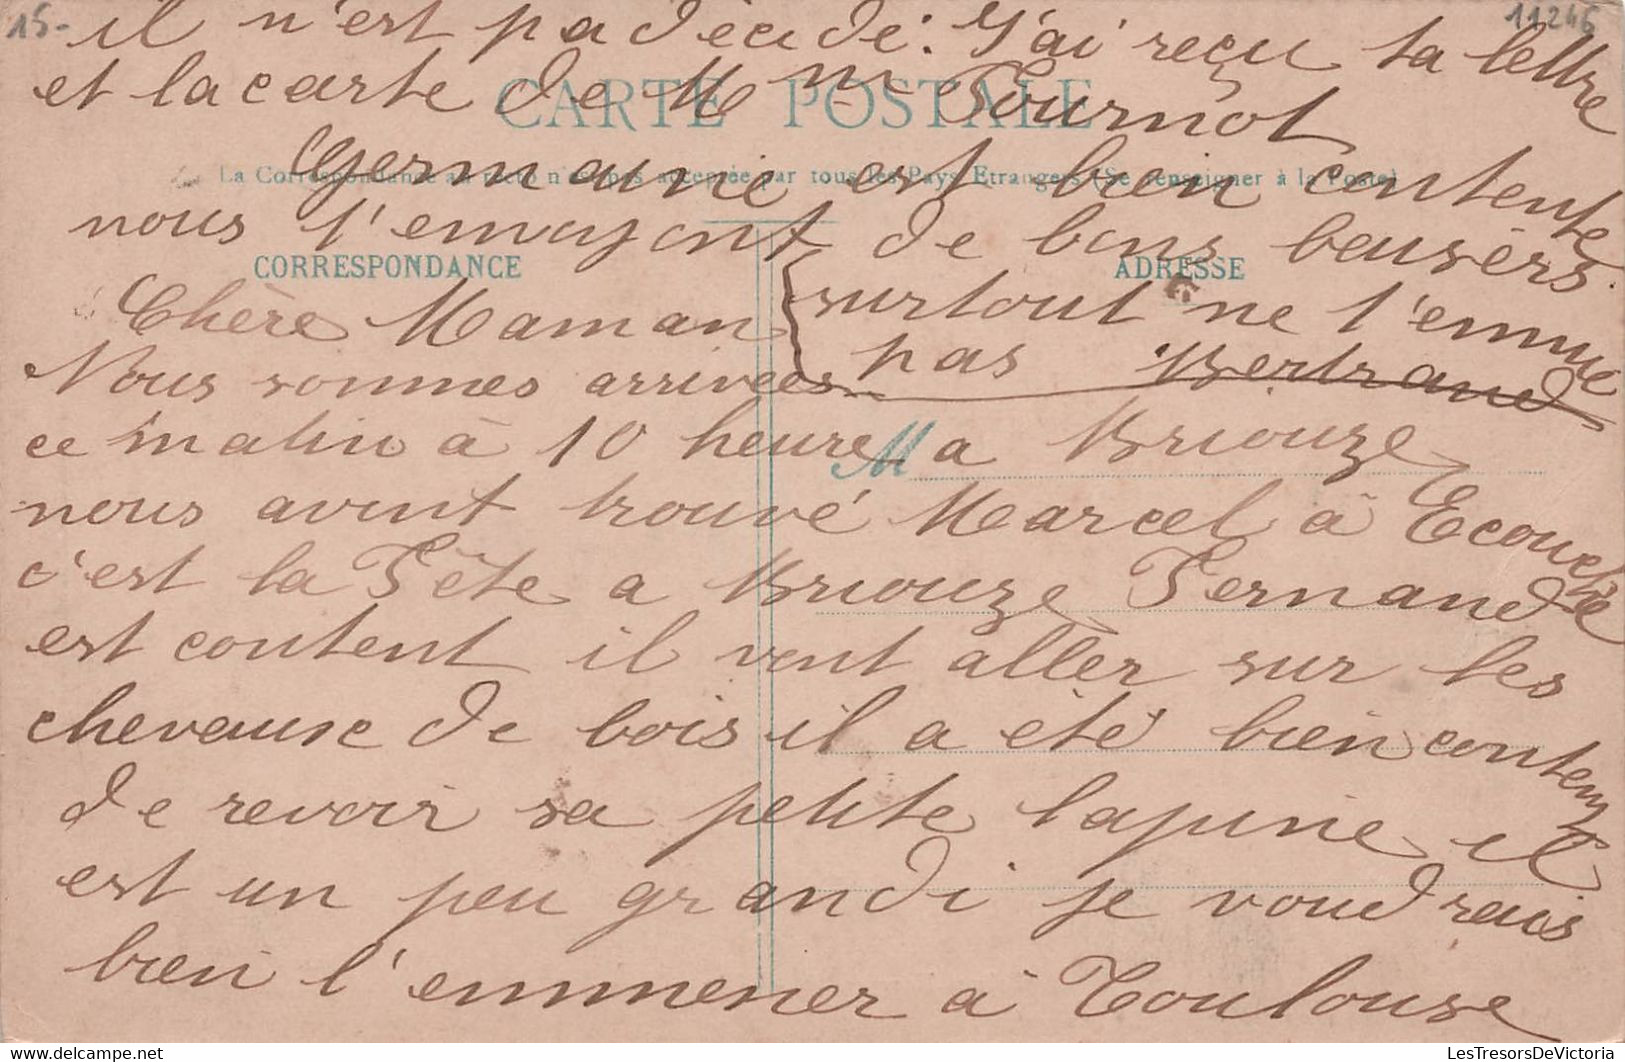 15-
11246
il n'est pa décidé. J'ai reçu ta lettre
et la carte de Mme Fournol
CARTE POSTALE
Germaine est bien contente
La Correspondance au recto n'est pas acceptée par tous les Pays Etrangers (Se renseigner à la Poste)
nous t'envoyont de bons baisers.
CORRESPONDANCE
ADRESSE
surtout ne t'ennuie
pas Bertrand
Chère Maman
Nous sommes arrivées
ce matin à 10 heure a Briouze
M
nous avont trouvé Marcel à Ecouché
c'est la Fête a Briouze Fernand
est content il veut aller sur les
chevause de bois il a été bien content
de revoir sa petite lapine il
est un peu grandi je voudrais
bien l'emmener à Toulouse
LesTresorsDeVictoria